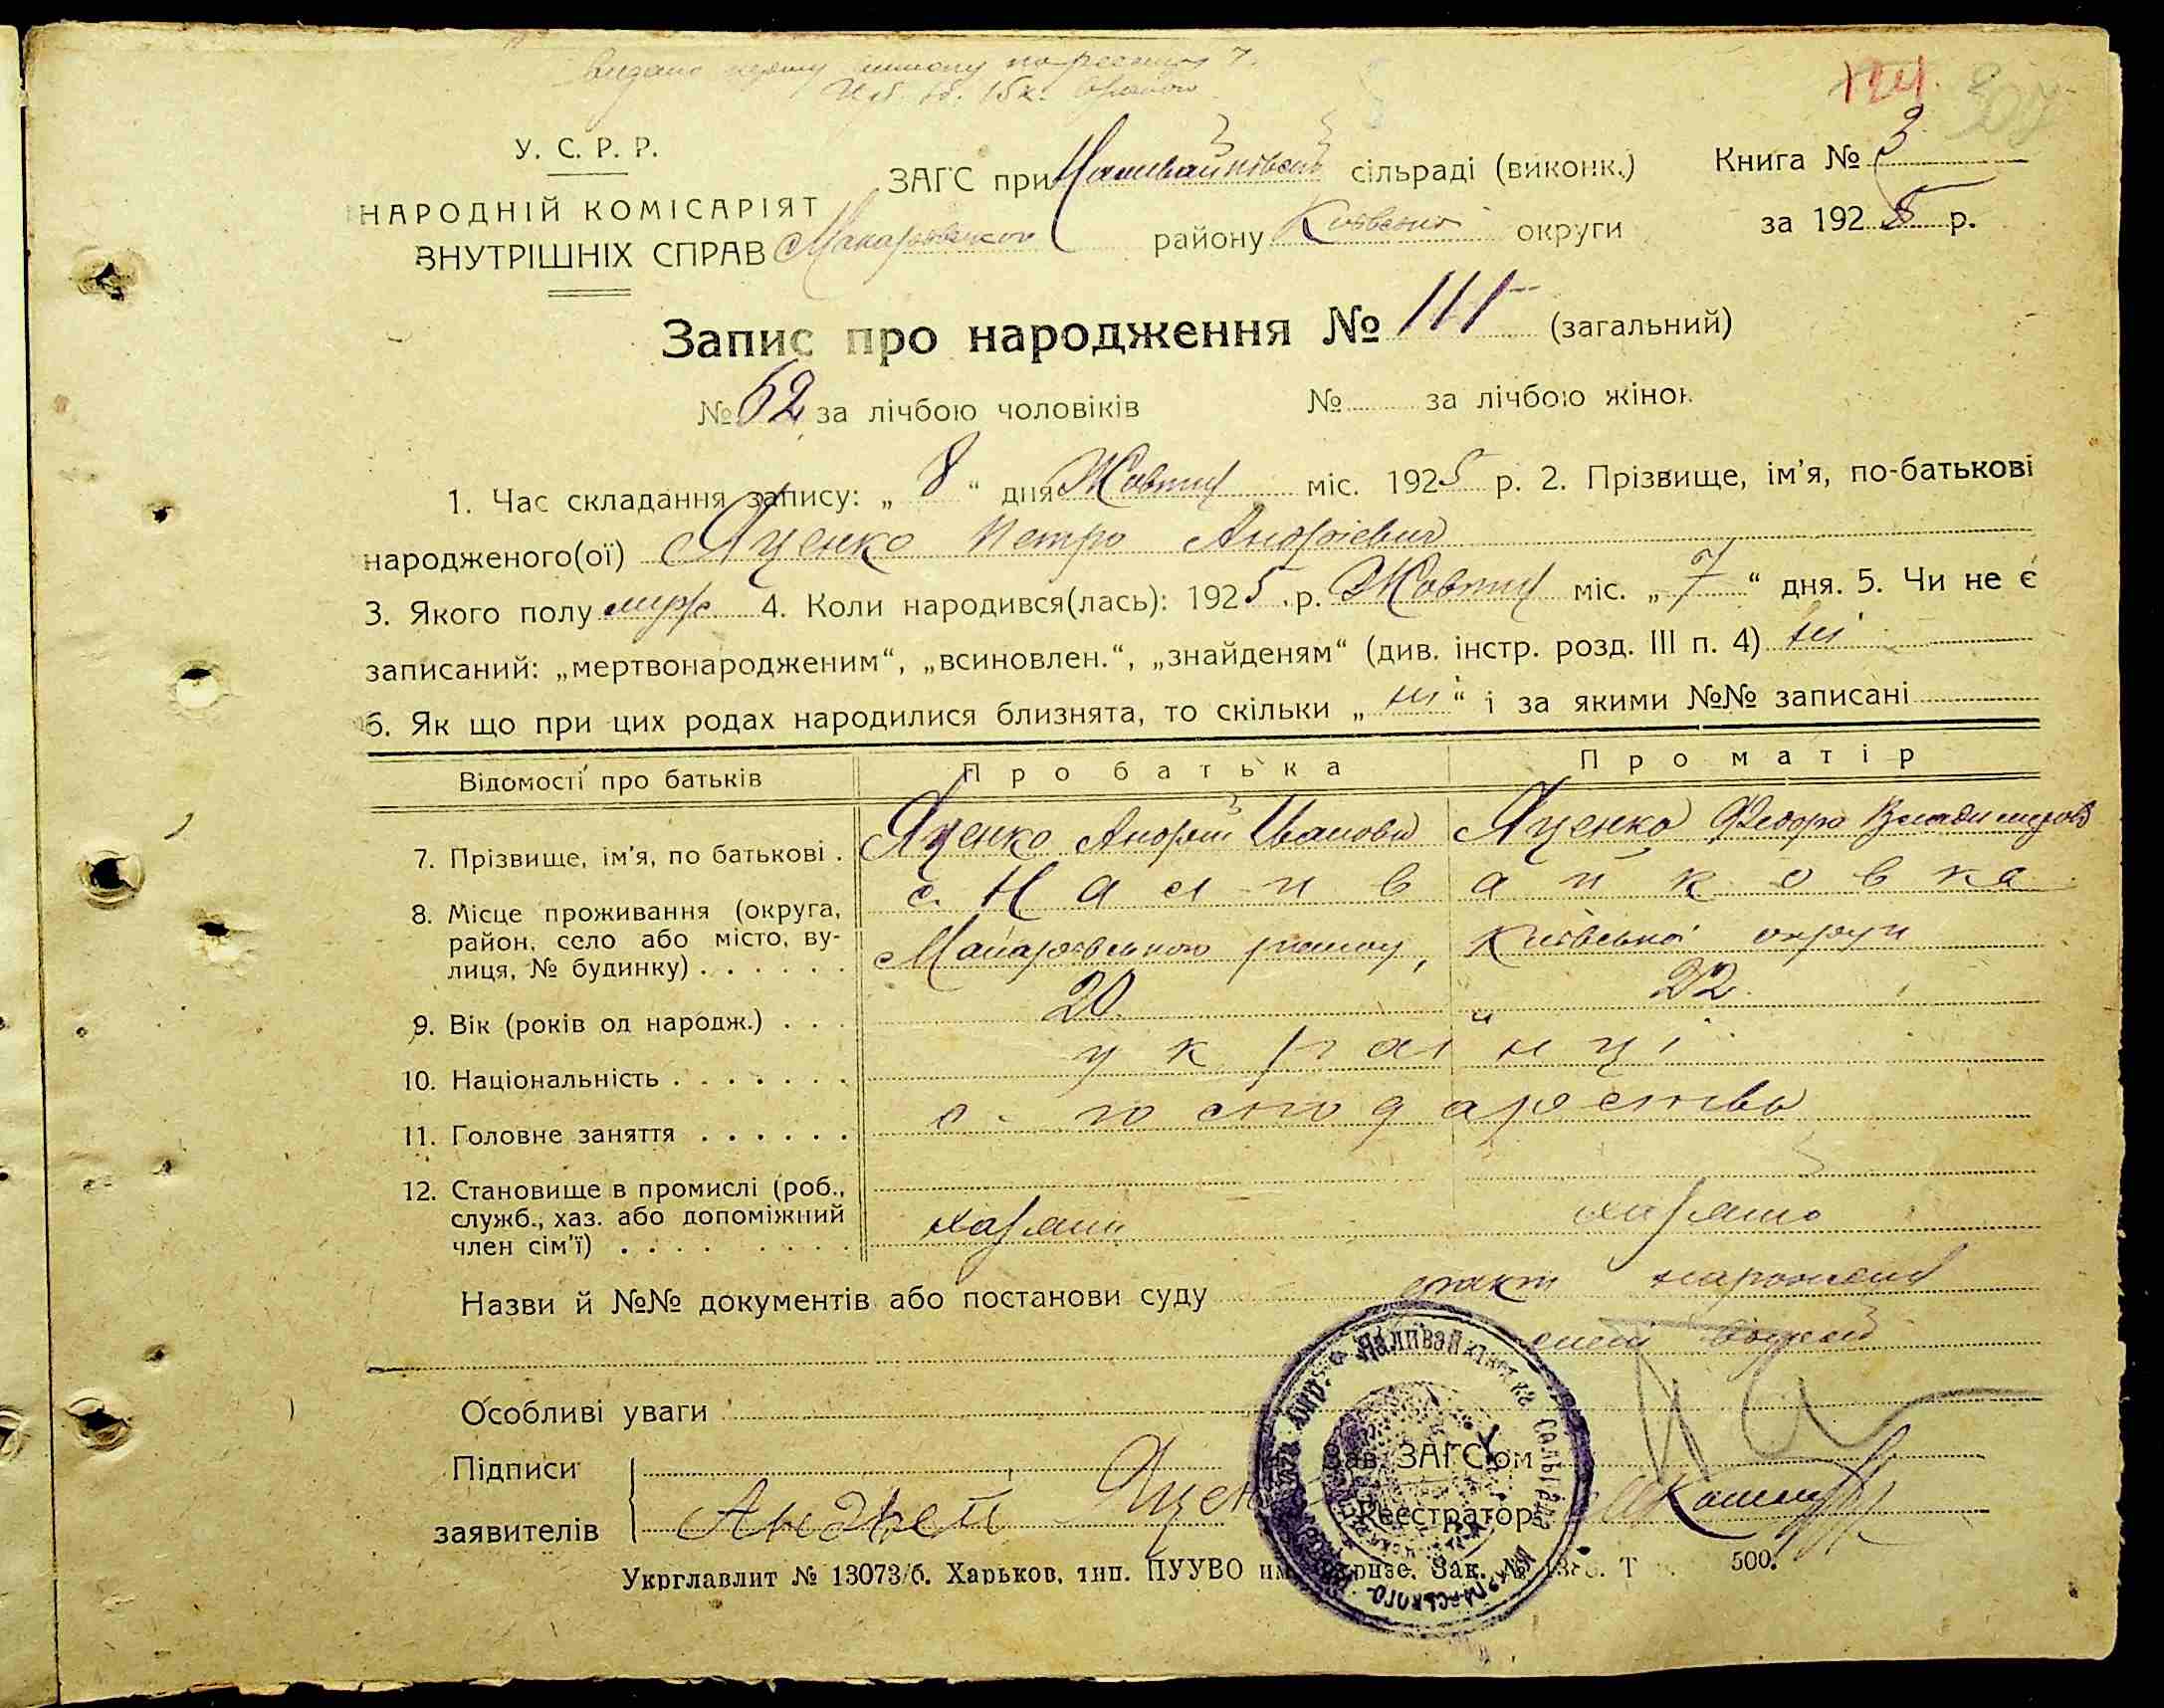 124.
307
У. С. Р. Р.
НАРОДНІЙ КОМІСАРІЯТ
ВНУТРІШНІХ СПРАВ
ЗАГС при Наливайківській сільраді (виконк.)
Макарівського району Київської округи
Книга № 3
за 1925 р.
Запис про народження № 111 (загальний)
№ 62 за лічбою чоловіків № за лічбою жінок
1. Час складання запису: „ 8 “ дня Жовтня міс. 1925 р. 2. Прізвище, ім’я, по-батькові
народженого(ої) Яценко Петро Андрієвич
3. Якого полу муж. 4. Коли народився(лась): 1925 р. Жовтня міс. „ 7 “ дня. 5. Чи не є
записаний: „мертвонародженим“, „всиновлен.“, „знайденям“ (див. інстр. розд. III п. 4) ні
6. Як що при цих родах народилися близнята, то скільки „ ні “ і за якими №№ записані
Відомості про батьків Про батька Про матір
7. Прізвище, ім’я, по батькові . Яценко Андрій Іванови Яценко Федора Владимиров
8. Місце проживання (округа,
район, село або місто, ву-
лиця, № будинку) . . . . . .
с. Наливайковка
Макарівського району, Київської округи
9. Вік (років од народж.) . . . 20. 22.
10. Національність . . . . . . . українці
11. Головне заняття . . . . . . с. господарство
12. Становище в промислі (роб.,
служб., хаз. або допоміжний
член сім’ї) . . . .
Назви й №№ документів або постанови суду
Особливі уваги
Підписи
заявителів
Андрей Яцен
Зав. ЗАГС’ом
Реєстратор
Укрглавлит № 13073/б. Харьков, тип. ПУУВО Зак. № 500.